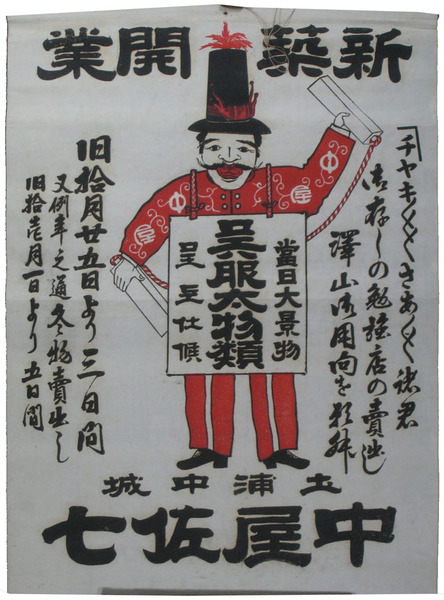 新築開業
チャキ〱〱さあ〱〱諸君
御存しの勉強店の賣出し
澤山御用向を願升
當日大景物
呉服太物類
呈上仕候
旧拾月廿五日より三日間
又例年之通冬物賣出し
旧拾壱月一日より五日間
土浦中城
中屋佐七